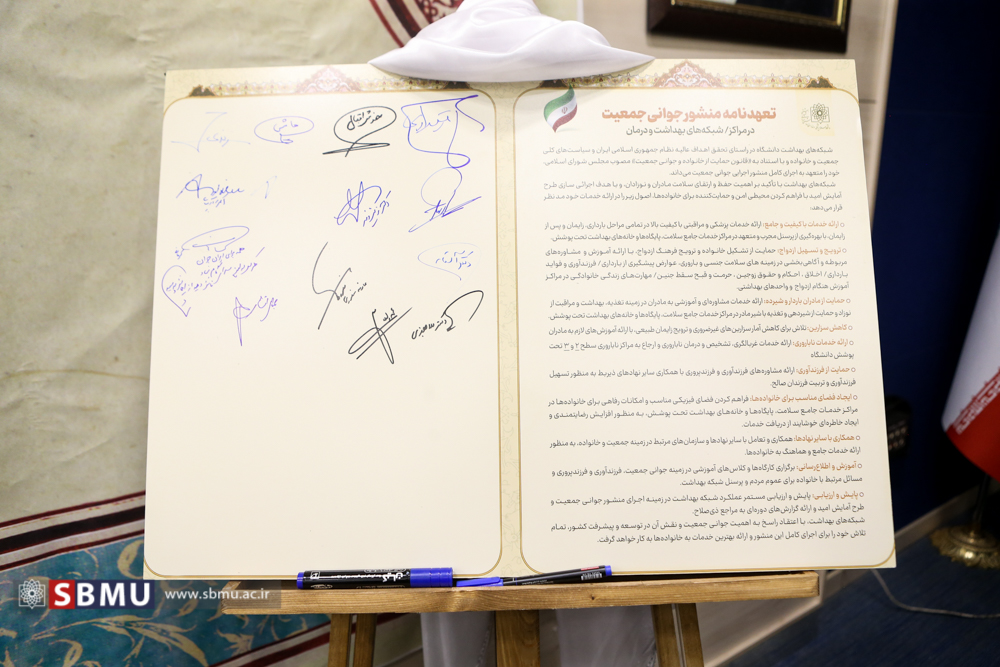 تعهدنامه منشور جوانی جمعیت
در مراکز / شبکه‌های بهداشت و درمان
شبکه‌های بهداشت دانشگاه در راستای تحقق اهداف عالیه نظام جمهوری اسلامی ایران و سیاست‌های کلی
جمعیت و خانواده و با استناد به «قانون حمایت از خانواده و جوانی جمعیت» مصوب مجلس شورای اسلامی،
خود را متعهد به اجرای کامل منشور اجرایی جوانی جمعیت می‌داند.
شبکه‌های بهداشت با تأکید بر اهمیت حفظ و ارتقای سلامت مادران و نوزادان، و با هدف اجرائی سازی طرح
آمایش امید با فراهم کردن محیطی امن و حمایت‌کننده برای خانواده‌ها، اصول زیر را در ارائه خدمات خود مد نظر
قرار می‌دهد:
ارائه خدمات با کیفیت و جامع: ارائه خدمات پزشکی و مراقبتی با کیفیت بالا در تمامی مراحل بارداری، زایمان و پس از
زایمان، با بهره‌گیری از پرسنل مجرب و متعهد در مراکز خدمات جامع سلامت، پایگاه‌ها و خانه‌های بهداشت تحت پوشش.
ترویج و تسهیل ازدواج: حمایت از تشکیل خانواده و ترویج فرهنگ ازدواج، با ارائه آموزش و مشاوره‌های
مربوطه و آگاهی‌بخشی در زمینه های سلامت جنسی و باروری، عوارض پیشگیری از بارداری / فرزندآوری و فواید
بارداری / اخلاق ، احکام و حقوق زوجین، حرمت و قبح سقط جنین / مهارت‌های زندگی خانوادگی در مراکز
آموزش هنگام ازدواج و واحدهای بهداشتی.
حمایت از مادران باردار و شیرده: ارائه خدمات مشاوره‌ای و آموزشی به مادران در زمینه تغذیه، بهداشت و مراقبت از
نوزاد و حمایت از شیردهی و تغذیه با شیر مادر در مراکز خدمات جامع سلامت، پایگاه‌ها و خانه‌های بهداشت تحت پوشش.
کاهش سزارین: تلاش برای کاهش آمار سزارین‌های غیرضروری و ترویج زایمان طبیعی، با ارائه آموزش‌های لازم به مادران
ارائه خدمات ناباروری: ارائه خدمات غربالگری، تشخیص و درمان ناباروری و ارجاع به مراکز ناباروری سطح ۲ و ۳ تحت
پوشش دانشگاه
حمایت از فرزندآوری: ارائه مشاوره‌های فرزندآوری و فرزندپروری با همکاری سایر نهادهای ذیربط به منظور تسهیل
فرزندآوری و تربیت فرزندان صالح.
ایجاد فضای مناسب برای خانواده‌ها: فراهم کردن فضای فیزیکی مناسب و امکانات رفاهی برای خانواده‌ها در
مراکز خدمات جامع سلامت، پایگاه‌ها و خانه‌های بهداشت تحت پوشش، به منظور افزایش رضایتمندی و
ایجاد خاطره‌ای خوشایند از دریافت خدمات.
همکاری با سایر نهادها: همکاری و تعامل با سایر نهادها و سازمان‌های مرتبط در زمینه جمعیت و خانواده، به منظور
ارائه خدمات جامع و هماهنگ به خانواده‌ها.
آموزش و اطلاع‌رسانی: برگزاری کارگاه‌ها و کلاس‌های آموزشی در زمینه جوانی جمعیت، فرزندآوری و فرزندپروری و
مسائل مرتبط با خانواده برای عموم مردم و پرسنل شبکه بهداشت.
پایش و ارزیابی: پایش و ارزیابی مستمر عملکرد شبکه بهداشت در زمینه اجرای منشور جوانی جمعیت و
طرح آمایش امید و ارائه گزارش‌های دوره‌ای به مراجع ذی‌صلاح.
شبکه‌های بهداشت، با اعتقاد راسخ به اهمیت جوانی جمعیت و نقش آن در توسعه و پیشرفت کشور، تمام
تلاش خود را برای اجرای کامل این منشور و ارائه بهترین خدمات به خانواده‌ها به کار خواهد گرفت.
SBMU
www.sbmu.ac.ir